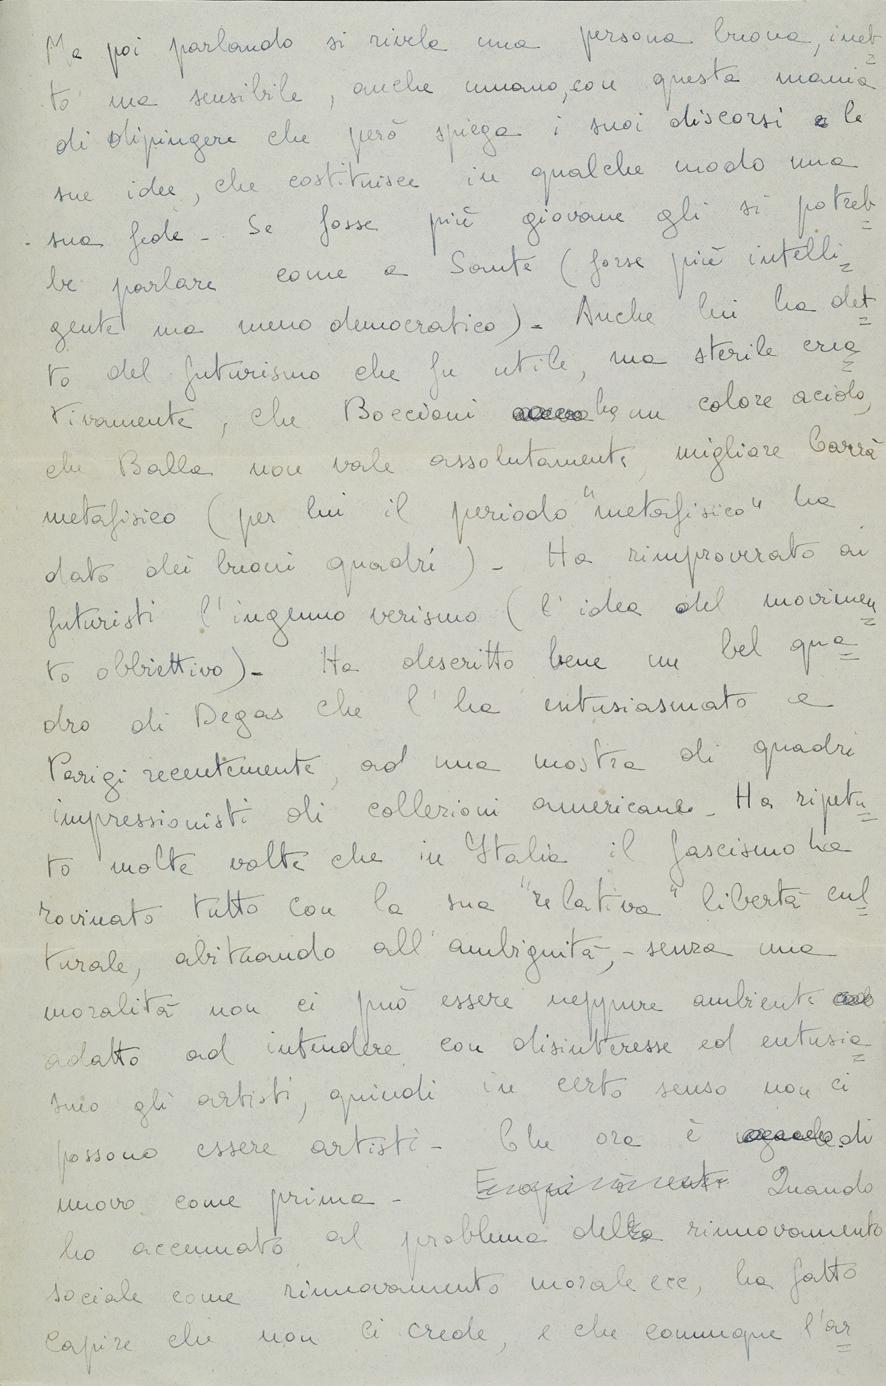 Ma poi parlando si rivela una persona buona, inet=
to ma sensibile, anche umano, con questa mania
di dipingere che però spiega i suoi discorsi e le
sue idee, che costituisce in qualche modo una
sua fede - Se fosse più giovane gli si potreb=
be parlare come a Sante (forse più intelli=
gente ma meno democratico) - Anche lui ha det=
to del futurismo che fu utile, ma sterile crea=
tivamente, che Boccioni ha un colore acido,
che Balla non vale assolutamente, migliore Carrà
metafisico (per lui il periodo "metafisico" ha
dato dei buoni quadri) - Ha rimproverato ai
futuristi l'ingenuo verismo (l'idea del movimen=
to obbiettivo) - Ha descritto bene un bel qua=
dro di Degas che l'ha entusiasmato a
Parigi recentemente, ad una mostra di quadri
impressionisti di collezioni americane - Ha ripetu=
to molte volte che in Italia il fascismo ha
rovinato tutto con la sua "relativa" libertà cul=
turale, abituando all'ambiguità, - senza una
moralità non ci può essere neppure ambiente
adatto ad intendere con disinteresse ed entusia=
smo gli artisti, quindi in certo senso non ci
possono essere artisti - Che ora è di
nuovo come prima - Quando
ho accennato al problema del rinnovamento
sociale come rinnovamento morale ecc, ha fatto
capire che non ci crede, e che comunque l'ar=